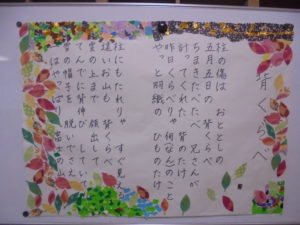 背くらべ
柱の傷は おととしの
五月五日の 背くらべ
ちまきたべたべ 兄さんが
計ってくれた 背のたけ
昨日くらべりゃ 何のこと
やっと羽織の ひものたけ
柱にもたれりゃ すぐ見える
遠いお山も 背くらべ
雲の上まで 顔出して
てんでに背伸び していても
雪の帽子を 脱いでさえ
一はやっぱり 富士の山